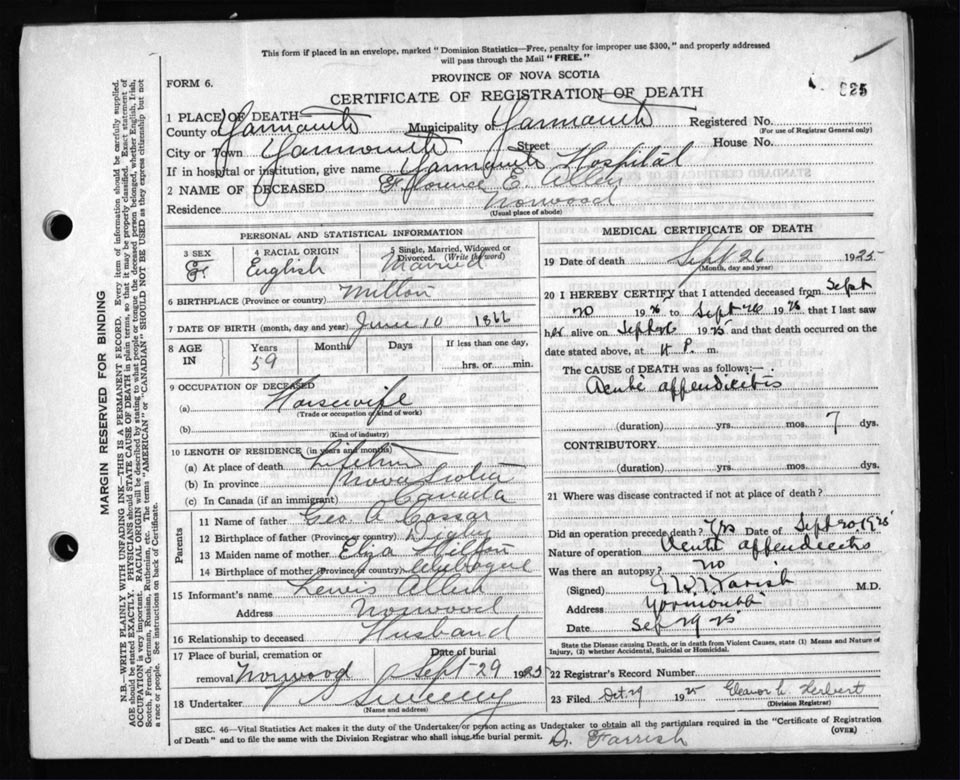 This form if placed in an envelope, marked "Dominion Statistics—Free, penalty for improper use $300," and properly addressed
will pass through the Mail "FREE."
PROVINCE OF NOVA SCOTIA
FORM 6.
CERTIFICATE OF REGISTRATION OF DEATH
825
1 PLACE OF DEATH
County of Yarmouth Municipality of Yarmouth Registered No.
(For use of Registrar General only)
City or Town Yarmouth Street House No.
If in hospital or institution, give name Yarmouth Hospital
2 NAME OF DECEASED Florence E. Allen
Residence Norwood
(Usual place of abode)
PERSONAL AND STATISTICAL INFORMATION
3 SEX F
4 RACIAL ORIGIN English
5 Single, Married, Widowed or Divorced. (Write the word) Married
6 BIRTHPLACE (Province or country) Milton
7 DATE OF BIRTH (month, day and year) June 10 1866
8 AGE IN Years 59 Months Days If less than one day, hrs. or min.
9 OCCUPATION OF DECEASED
(a) Housewife
(Trade or occupation or kind of work)
(b)
(Kind of industry)
10 LENGTH OF RESIDENCE (in years and months)
(a) At place of death Lifetime
(b) In province Nova Scotia
(c) In Canada (if an immigrant) Canada
Parents
11 Name of father Geo. A
12 Birthplace of father (Province or country) Digby
13 Maiden name of mother
14 Birthplace of mother (Province or country)
15 Informant's name Lewis Allen
Address Norwood
16 Relationship to deceased Husband
17 Place of burial, cremation or removal Norwood Date of burial Sept 29 1925
18 Undertaker Sweeny
(Name and address)
MEDICAL CERTIFICATE OF DEATH
19 Date of death Sept 26 1925
(Month, day and year)
20 I HEREBY CERTIFY that I attended deceased from Sept
20 19 to Sept 26 19 25 that I last saw
her alive on Sept 26 19 25 and that death occurred on the
date stated above, at P. m.
The CAUSE of DEATH was as follows:—
Acute appendicitis
(duration) yrs. mos. 7 dys.
CONTRIBUTORY.
(duration) yrs. mos. dys.
21 Where was disease contracted if not at place of death?
Did an operation precede death? Yes Date of Sept 20 1925
Nature of operation Acute appendicitis
Was there an autopsy? No
(Signed) Farish M.D.
Address Yarmouth
Date Sep 29 25
State the Disease causing Death, or in death from Violent Causes, state (1) Means and Nature of
Injury, (2) whether Accidental, Suicidal or Homicidal.
22 Registrar's Record Number
23 Filed Oct 19 25 Eleanor L. Herbert
(Division Registrar)
SEC. 46—Vital Statistics Act makes it the duty of the Undertaker or person acting as Undertaker to obtain all the particulars required in the "Certificate of Registration
of Death" and to file the same with the Division Registrar who shall issue the burial permit.
(OVER)
Dr. Farrish
MARGIN RESERVED FOR BINDING
N.B.—WRITE PLAINLY WITH UNFADING INK—THIS IS A PERMANENT RECORD. Every item of information should be carefully supplied.
AGE should be stated EXACTLY. PHYSICIANS should STATE CAUSE OF DEATH in plain terms, so that it may be properly classified. Exact statement of
OCCUPATION is very important. RACIAL ORIGIN will be described by stating to what people or tongue the deceased person belonged, whether English, Irish,
Scotch, French, German, Russian, Ruthenian, etc. The terms "AMERICAN" or "CANADIAN" SHOULD NOT BE USED as they express citizenship but not
a race or people. See instructions on back of Certificate.